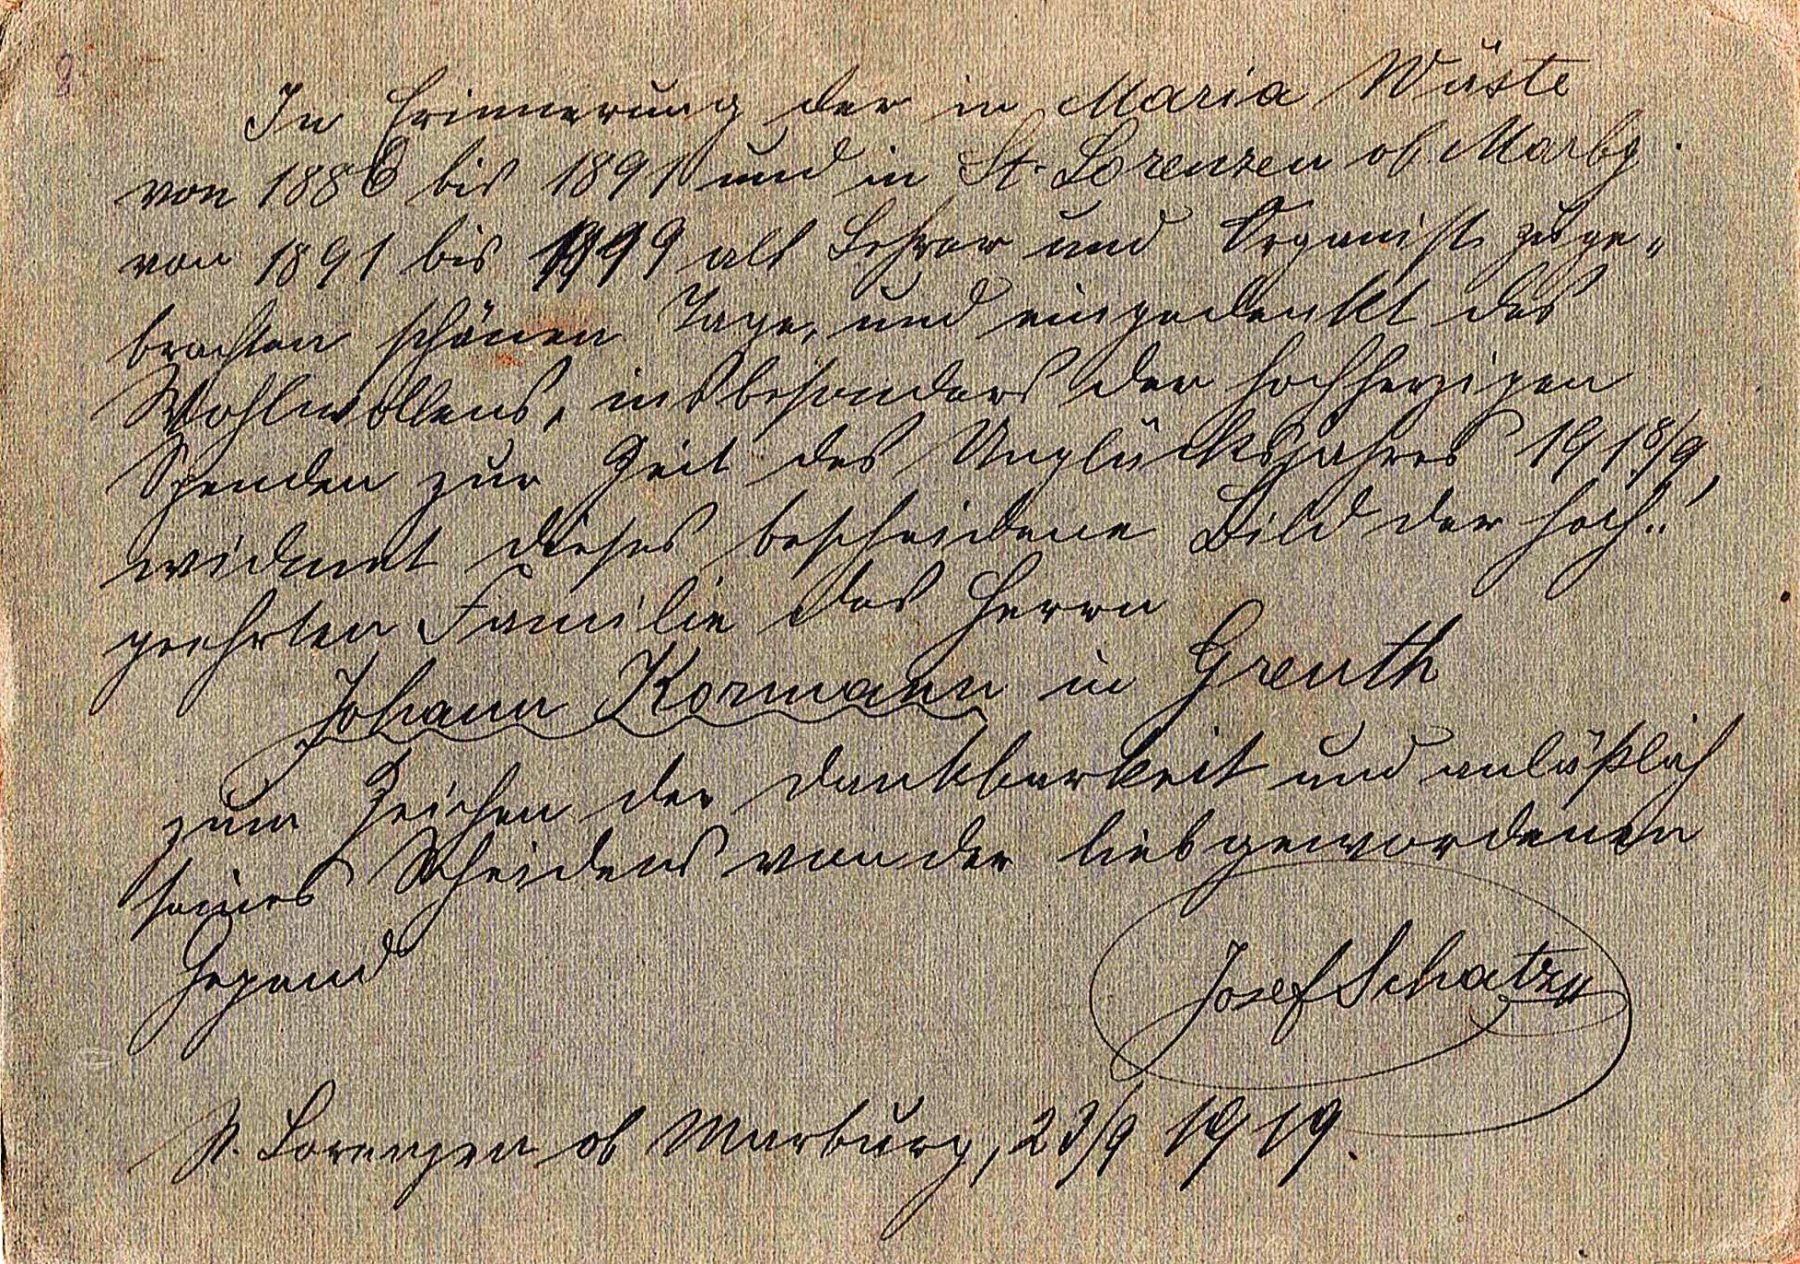 In Erinnerung der in Maria Wüste
von 1886 bis 1891 und in St. Lorenzen ob Marbg.
von 1891 bis 1899 als Lehrer und Organist zuge-
brachten schönen Tage, und eingedenkt des
Wohlwollens, insbesonders der hochherzigen
Spenden zur Zeit des Unglücksjahres 1918/9,
widmet dieses bescheidene Bild der hoch-
geehrten Familie des Herrn
Johann Kormann in Greuth
zum Zeichen der Dankbarkeit und anläßlich
seines Scheidens von der liebgewordenen
Gegend
Josef Schatz
St. Lorenzen ob Marburg, 23/9 1919.